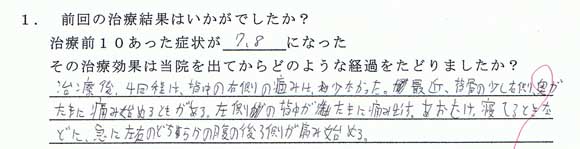 1. 前回の治療結果はいかがでしたか？
治療前10あった症状が 7,8 になった
その治療効果は当院を出てからどのような経過をたどりましたか？
治療後、4日程は、背中の右側の痛みは、少なかった。最近、背骨の少し右側が
たまに痛み始めるときがある。左側の背中がたまに痛み出す。あおむけ、寝てるときな
どに、急に左右のどちらかの腹の後ろ側が痛み始める。